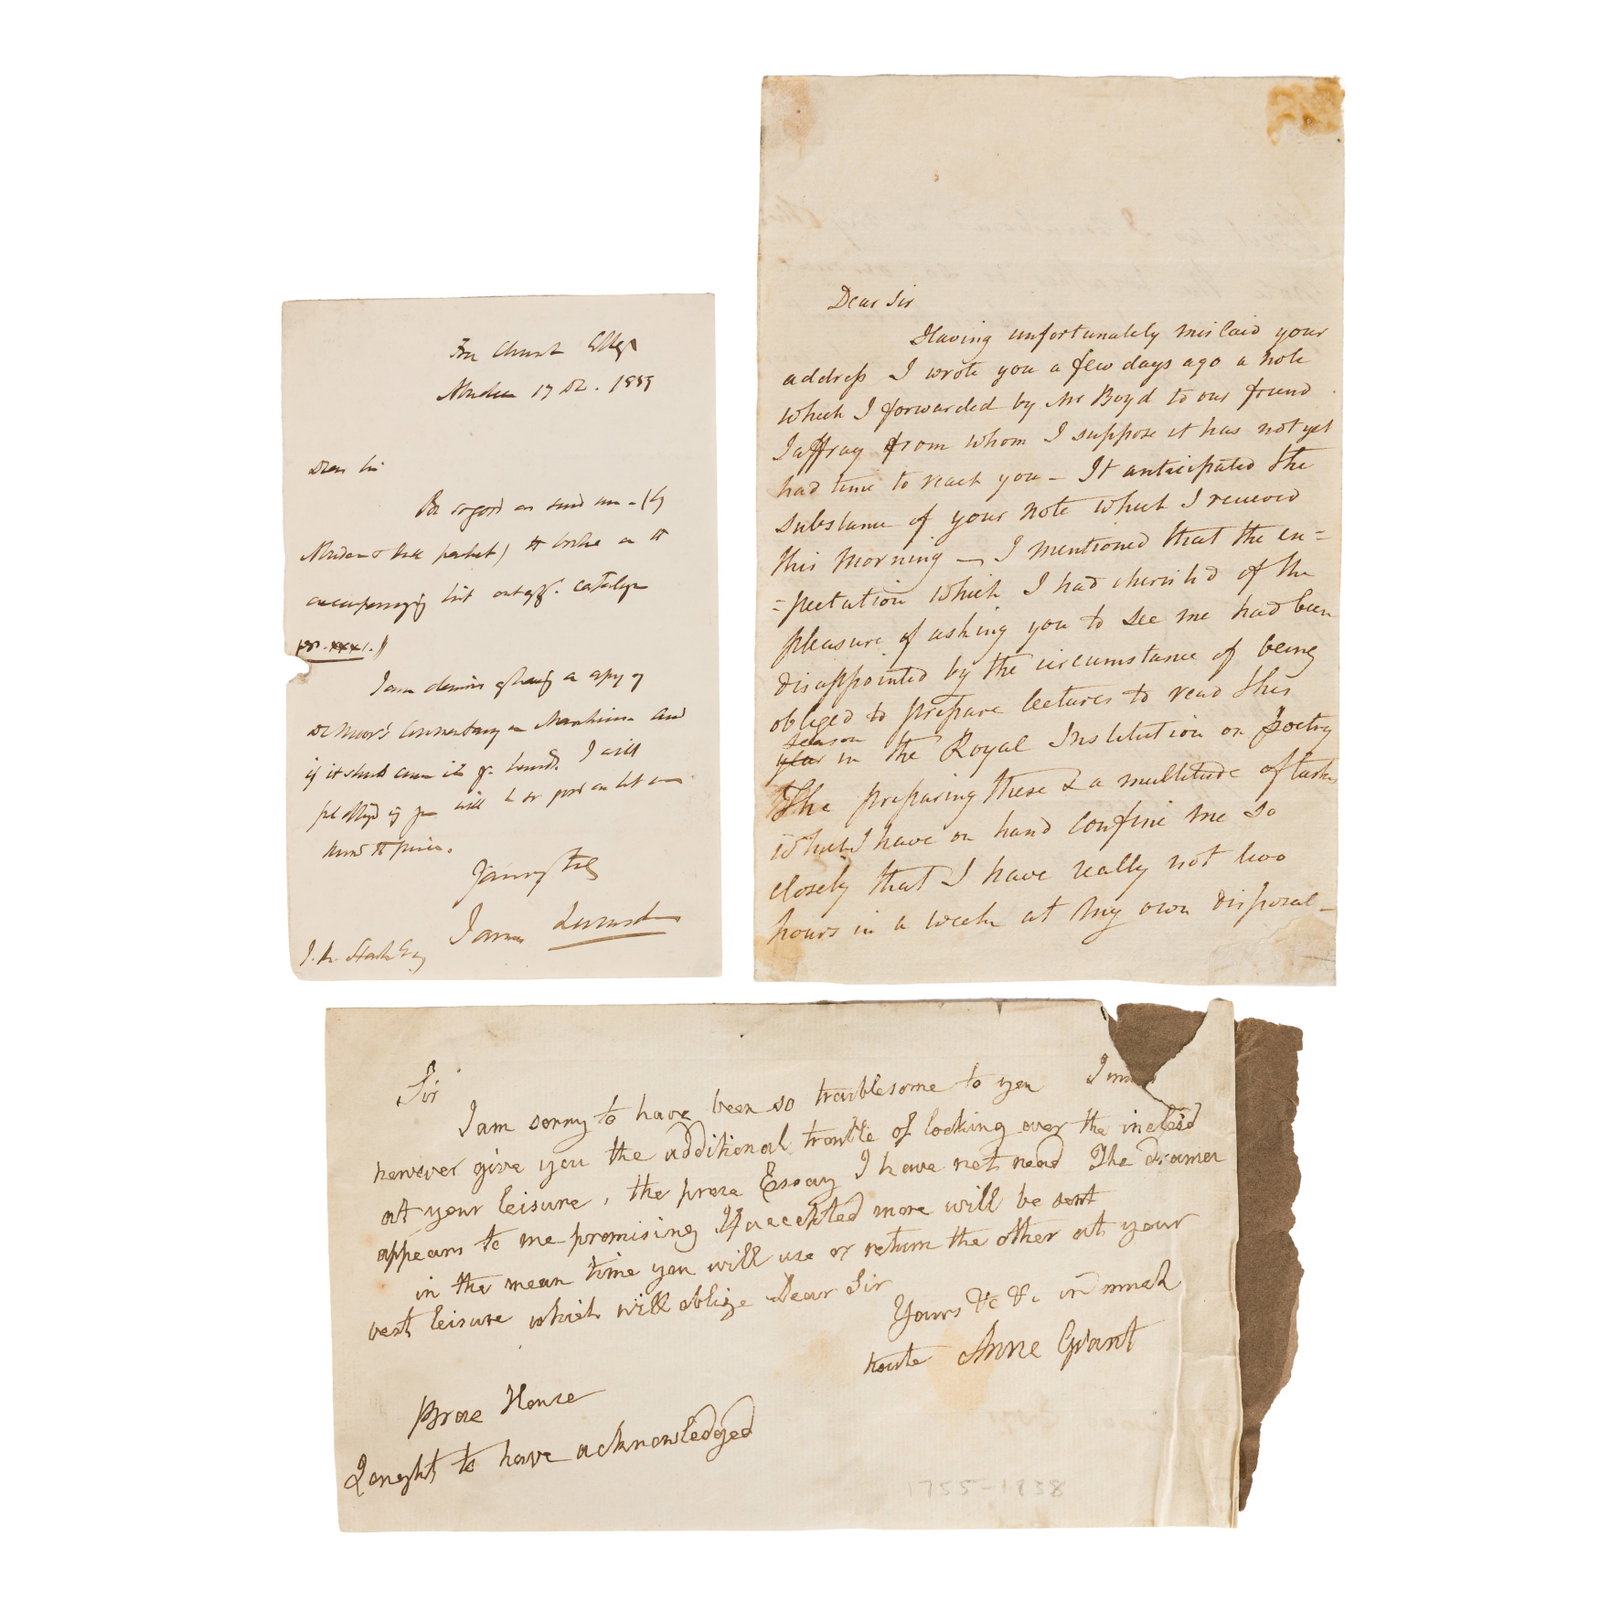 Free Church College
Aberdeen 17 Dec. 1859
Dear Sir
Be so good as send me - (by
Aberdeen parcel) the books on the
accompanying list out of yr. catalogue
I am desirous of having a copy of
Dr Moor's Commentary on and
if it should come in yr. hands. I will
be obliged if you will by post let me
know the price.
Yours truly
James Lumsden
Dear Sir
Having unfortunately mislaid your
address I wrote you a few days ago a note
which I forwarded by Mr Boyd to our friend
Jaffray from whom I suppose it has not yet
had time to reach you – It anticipated the
substance of your note which I received
this morning — I mentioned that the ex=
=pectation which I had cherish'd of the
pleasure of asking you to see me had been
disappointed by the circumstance of being
obliged to prepare lectures to read this
season
year in the Royal Institution on Poetry
The preparing these & a multitude of tasks
which I have on hand confine me so
closely that I have really not two
hours in a week at my own disposal –
Sir
I am sorry to have been so troublesome to you I must
however give you the additional trouble of looking over the inclosd
at your leisure, the prose Essay I have not read The Dramer
appears to me promising If accepted more will be sent
in the mean time you will use or return the other at your
best leisure which will oblige Dear Sir
Yours &c &c in much
haste Anne Grant
Brae House
I ought to have acknowledged
1755-1838